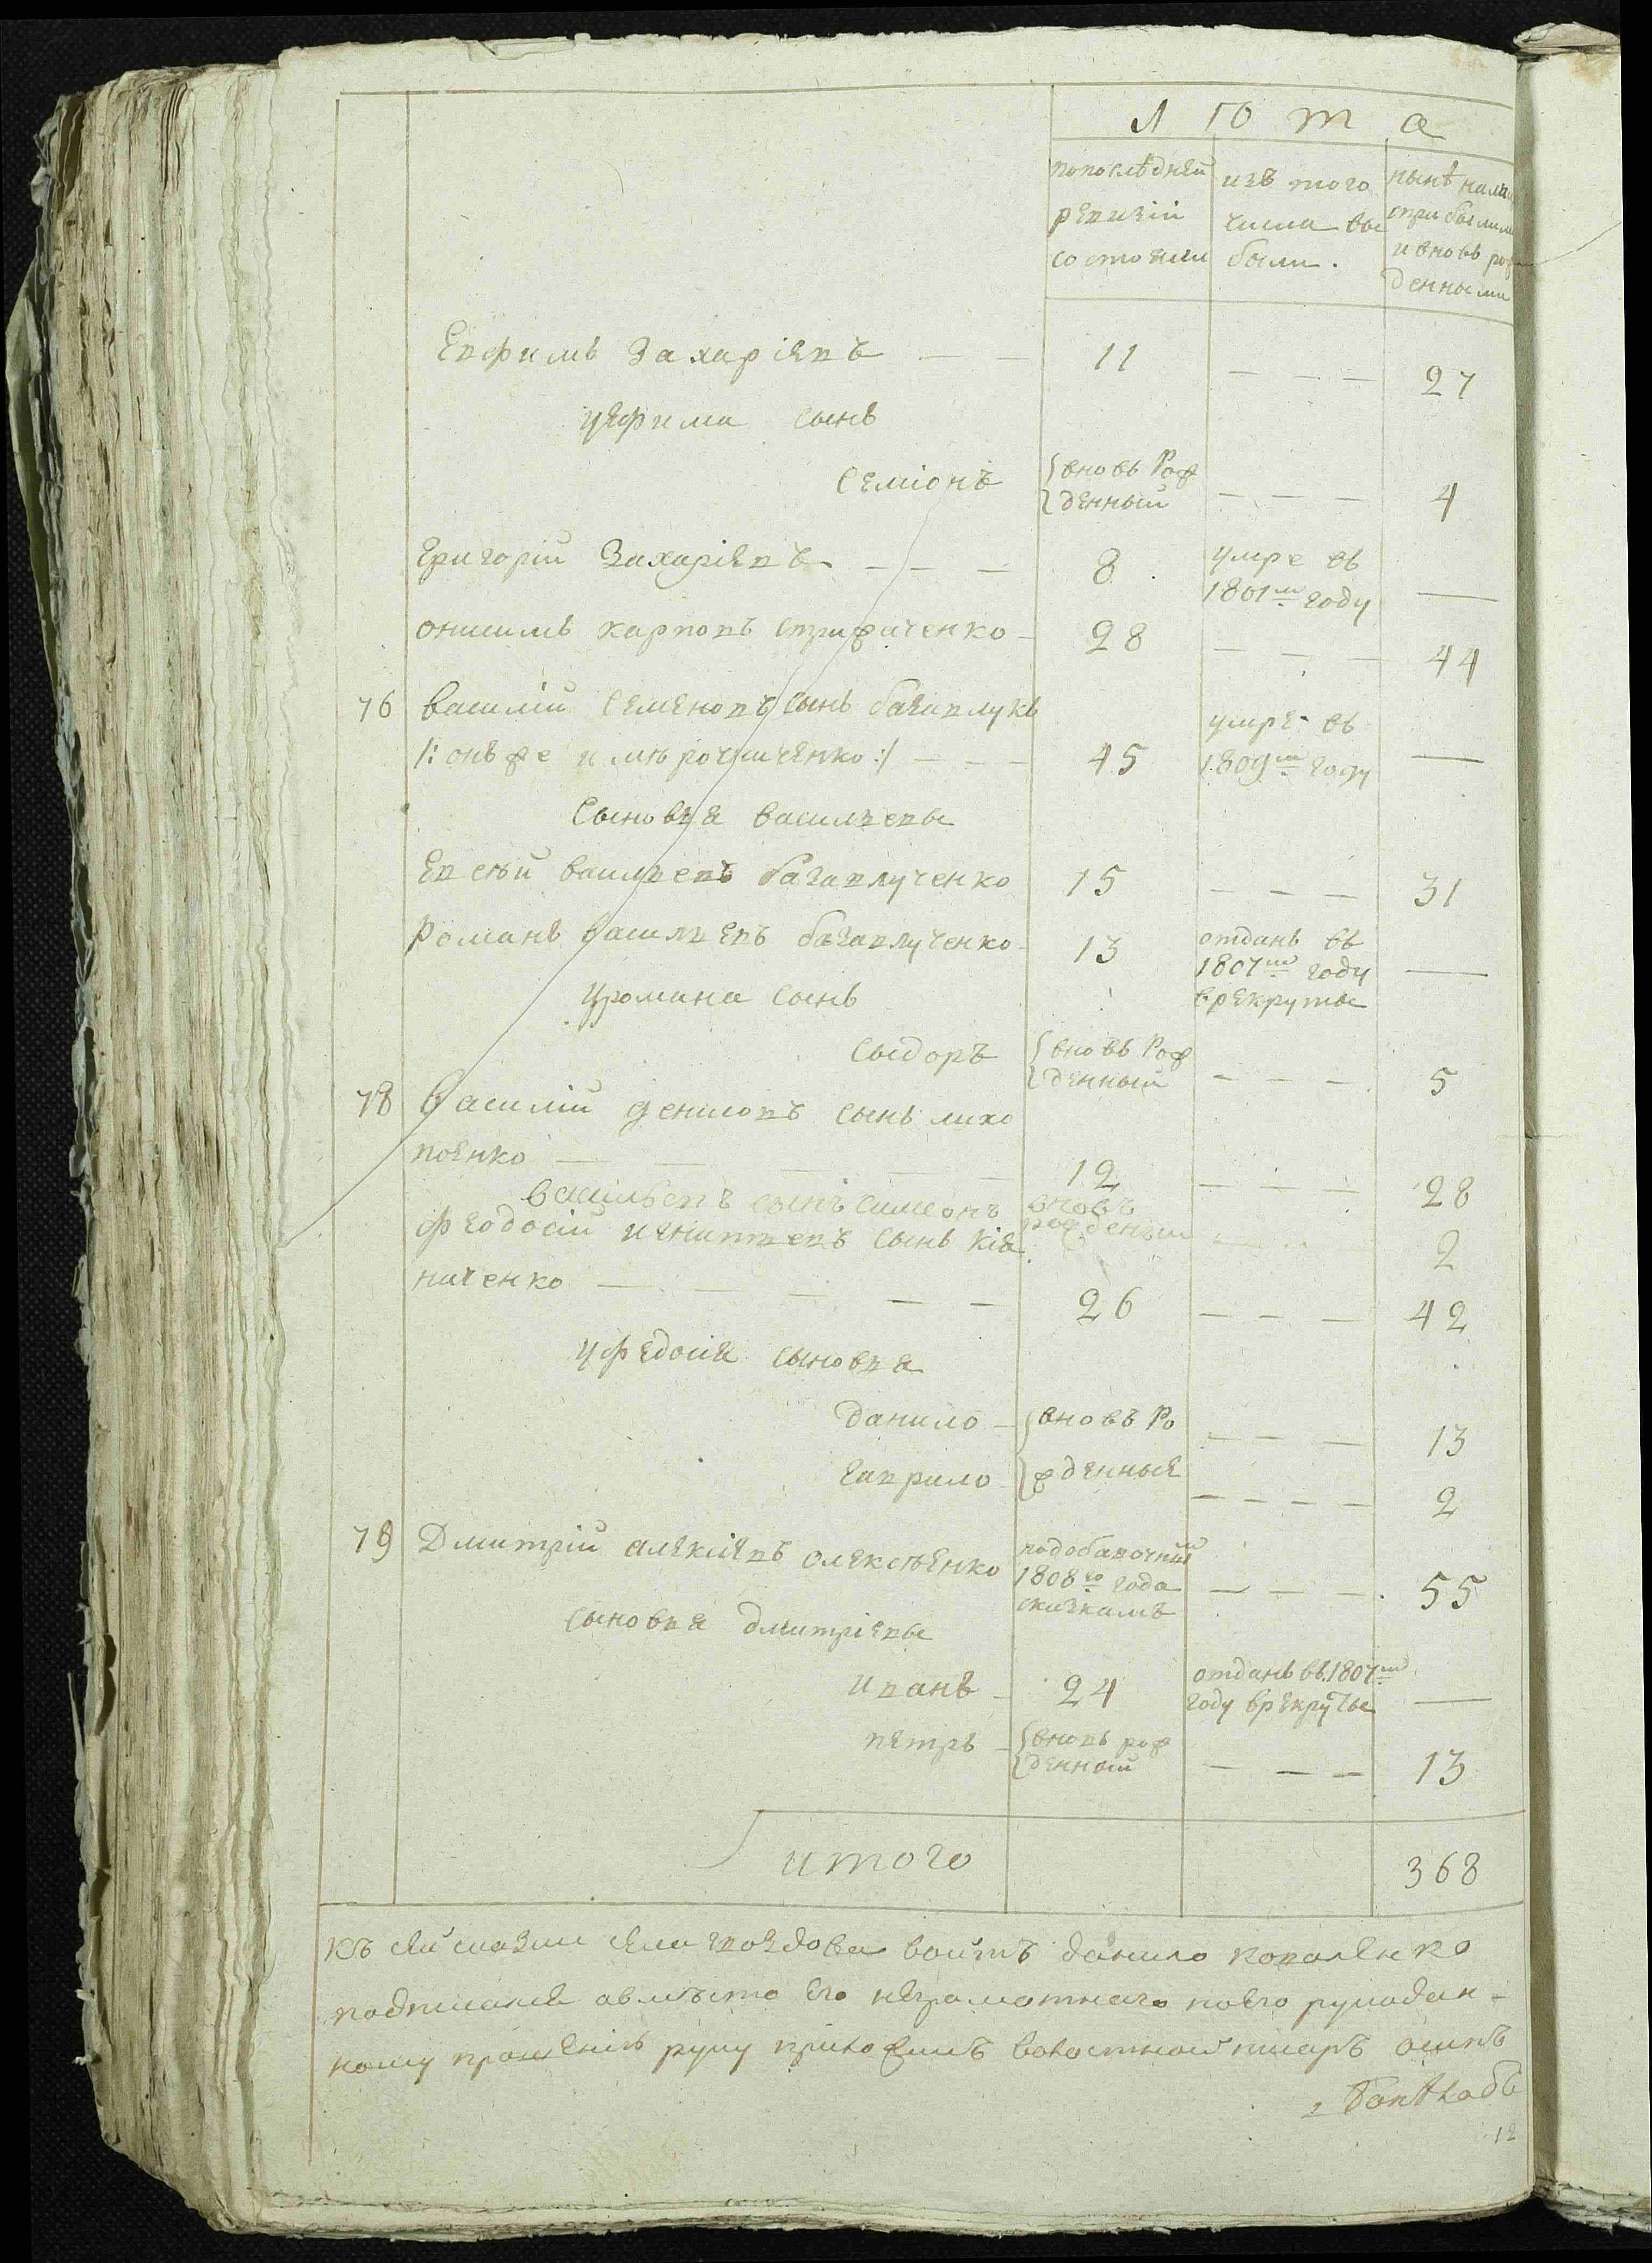 лѣта
попослѣдней ревизіи состояли
изъ того числа выбыли.
нынѣ нали сприбылыми и вновь рож денными
Евфимъ Захаріевъ — — 11 — — — 27
уевфима сынъ
Семіонъ вновь Рож денный — — — 4
Григорій Захаріевъ — — — 8 умре въ 1801м году —
онисимъ карповъ стрижаченко — 28 — — — 44
76 василій Семеновъ сынъ багавлукъ
/: онъ же и мірочниченко :/ — — — 45 умре въ 1809м году —
Сыновья василіевы
Евсѣй василіевъ багавлученко 15 — — — 31
Романъ василіевъ багавлученко 13 отданъ въ 1807м году врекруты —
уромана сынъ
Сыдоръ вновь Рож денный — — — 5
78 василій денисовъ сынъ лихо
поенко — — — — — 12 — — — 28
васильевъ сынъ симеонъ вновъ рожденый — — — 2
феодосій игнатіевъ сынъ кія
ниченко — — — — — 26 — — — 42
уфедосія сыновья
данило — вновъ Ро — — — 13
гаврило жденные — — — — 2
79 Дмитрій алексіевъ олексѣенко подобавочным 1808го года сказкамъ — — — 55
Сыновья дмитріевы
иванъ — 24 отданъ въ 1807м году врекруты —
петръ — вновь рож денный — — — 13
итого 368
Къ сей сказки села гвоздова войтъ данило коваленко
подписався авмѣсто его неграмотнаго поего рукодан-
ному прошенію руку приложилъ волостной писаръ осипъ
12